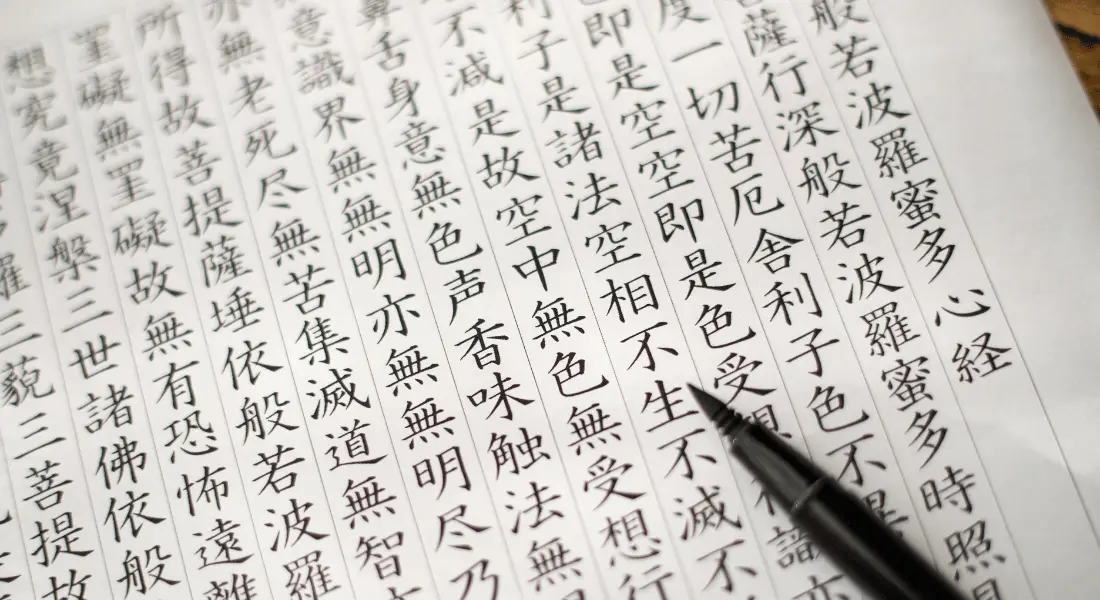 般若波羅蜜多心経
薩行深般若波羅蜜多時照
度一切苦厄舎利子色不
即是空空即是色受想識亦
利子是諸法空相不生不滅不
不減是故空中無色無受想行
鼻舌身意無色声香味触法無
意識界無無明亦無無明尽乃
亦無老死尽無苦集滅道無智
所得故菩提薩埵依般若波羅
罣礙無罣礙故無有恐怖遠離
想究竟涅槃三世諸佛依般
羅三藐三菩提故